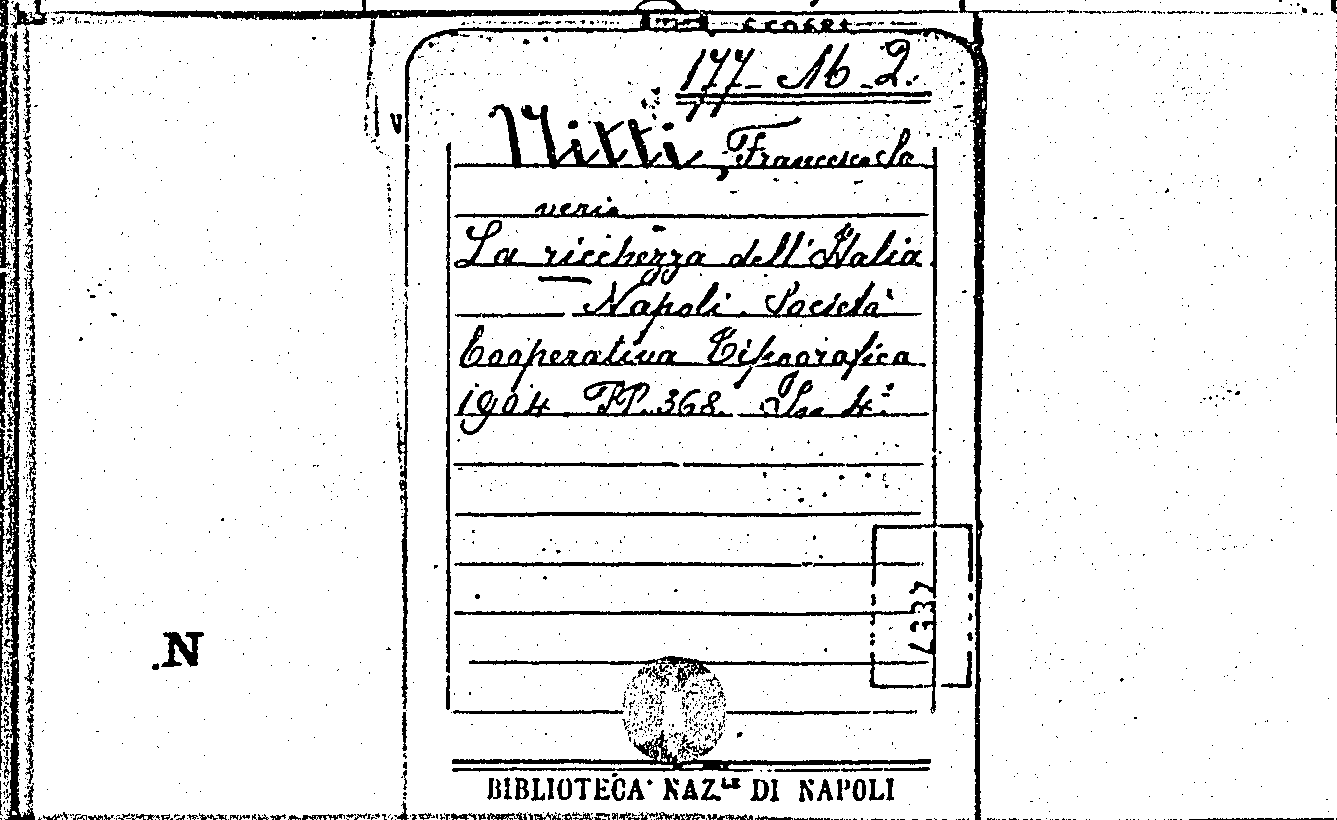 177 - M - 2.
Nitti, Francesco Sa
verio
La ricchezza dell'Italia.
Napoli. Società
Cooperativa Tipografica
1904. PP. 368. In 4º.
BIBLIOTECA NAZ.LE DI NAPOLI
.N
V